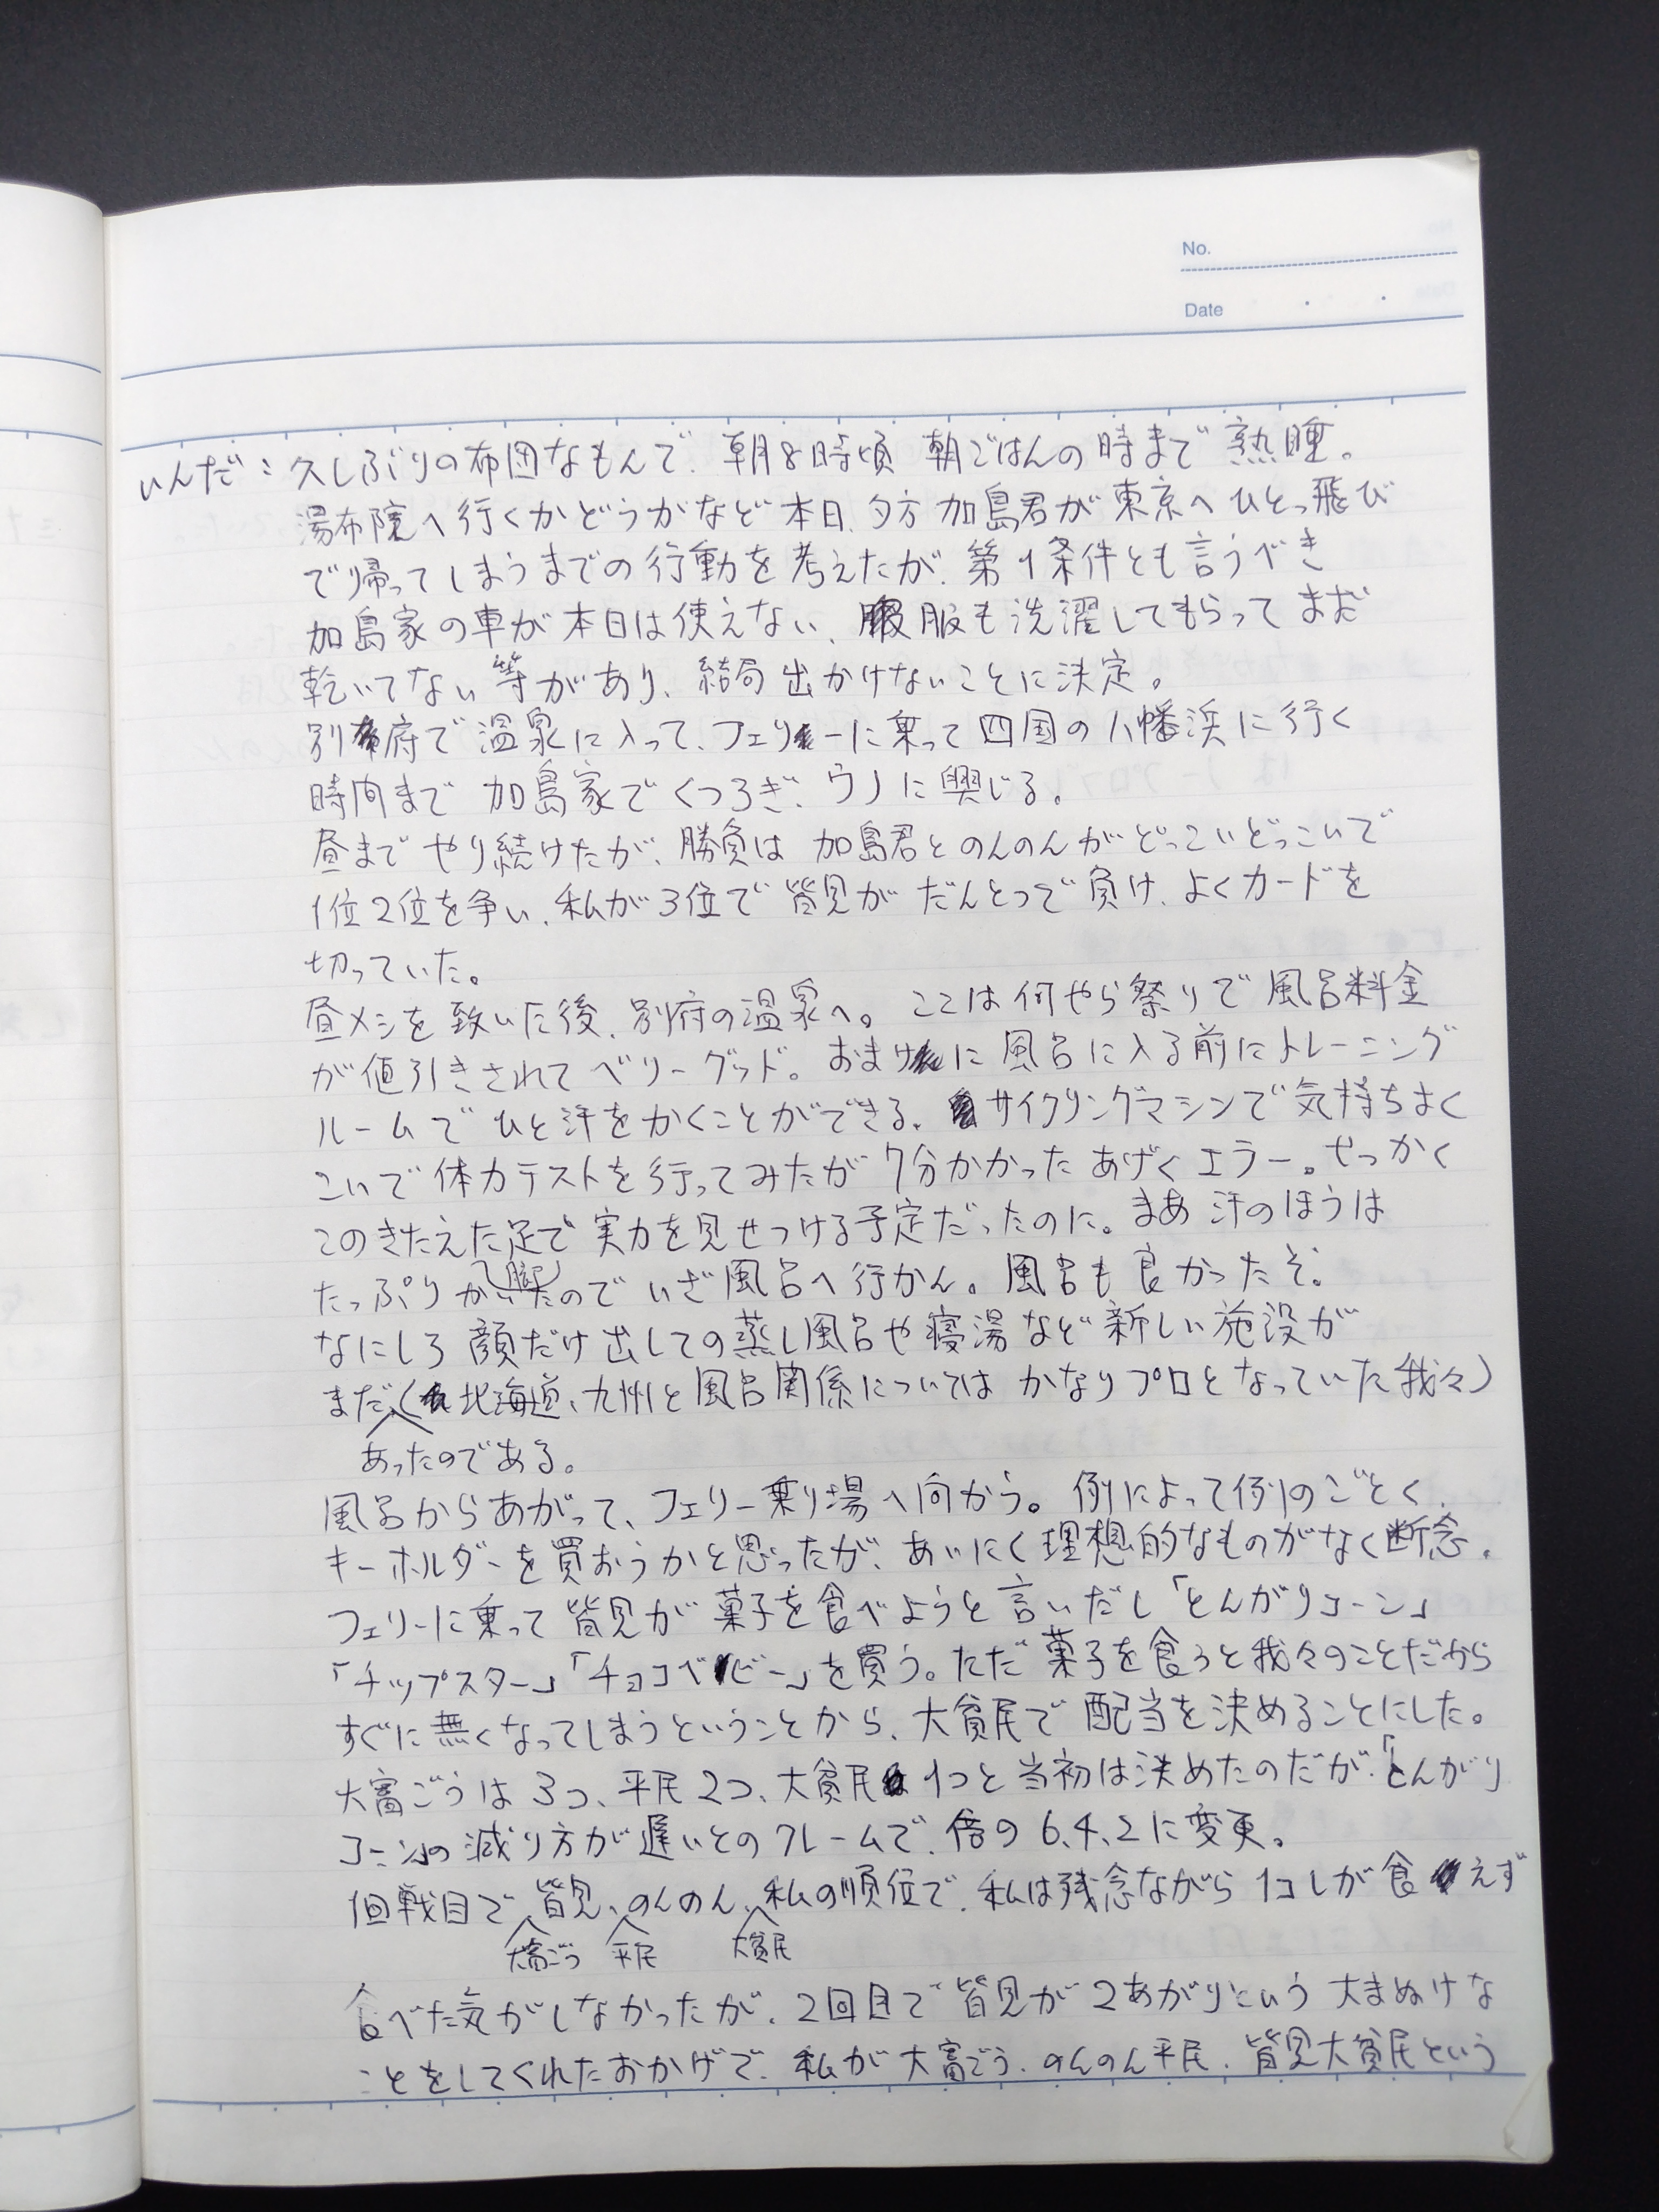 No.
Date
いんだ：久しぶりの布団なもんで、朝8時頃 朝ごはんの時まで熟睡。
湯布院へ行くかどうかなど本日、夕方 加島君が東京へひとっ飛び
で帰ってしまうまでの行動を考えたが、第1条件とも言うべき
加島家の車が本日は使えない、服も洗濯してもらってまだ
乾いてない等があり、結局出かけないことに決定。
別府で温泉に入って、フェリーに乗って四国の八幡浜に行く
時間まで 加島家でくつろぎ、ウノに興じる。
昼までやり続けたが、勝負は加島君とのんのんがどっこいどっこいで
1位2位を争い、私が3位で皆見がだんとつで負け、よくカードを
切っていた。
昼メシを致いた後、別府の温泉へ。ここは何やら祭りで風呂料金
が値引きされてベリーグッド。おまけに風呂に入る前にトレーニング
ルームでひと汗をかくことができる。サイクリングマシンで気持ちよく
こいで体力テストを行ってみたが7分かかったあげくエラー。せっかく
このきたえた足で実力を見せつける予定だったのに。まあ汗のほうは
たっぷりかいたのでいざ風呂へ行かん。風呂も良かったぞ。
なにしろ顔だけ出しての蒸し風呂や寝湯など新しい施設が
まだ(北海道、九州と風呂関係についてはかなりプロとなっていた我々)
あったのである。
風呂からあがって、フェリー乗り場へ向かう。例によって例のごとく、
キーホルダーを買おうかと思ったが、あいにく理想的なものがなく断念。
フェリーに乗って皆見が菓子を食べようと言いだし「とんがりコーン」
「チップスター」「チョコベビー」を買う。ただ菓子を食うと我々のことだから
すぐに無くなってしまうということから、大貧民で配当を決めることにした。
大富ごうは3つ、平民2つ、大貧民1つと当初は決めたのだが、「とんがり
コーン」の減り方が遅いとのクレームで、倍の6、4、2に変更。
1回戦目で皆見、のんのん、私の順位で、私は残念ながら1コしか食えず
大富ごう 平民 大貧民
食べた気がしなかったが、2回目で皆見が2あがりという大まぬけな
ことをしてくれたおかげで、私が大富ごう、のんのん平民、皆見大貧民という